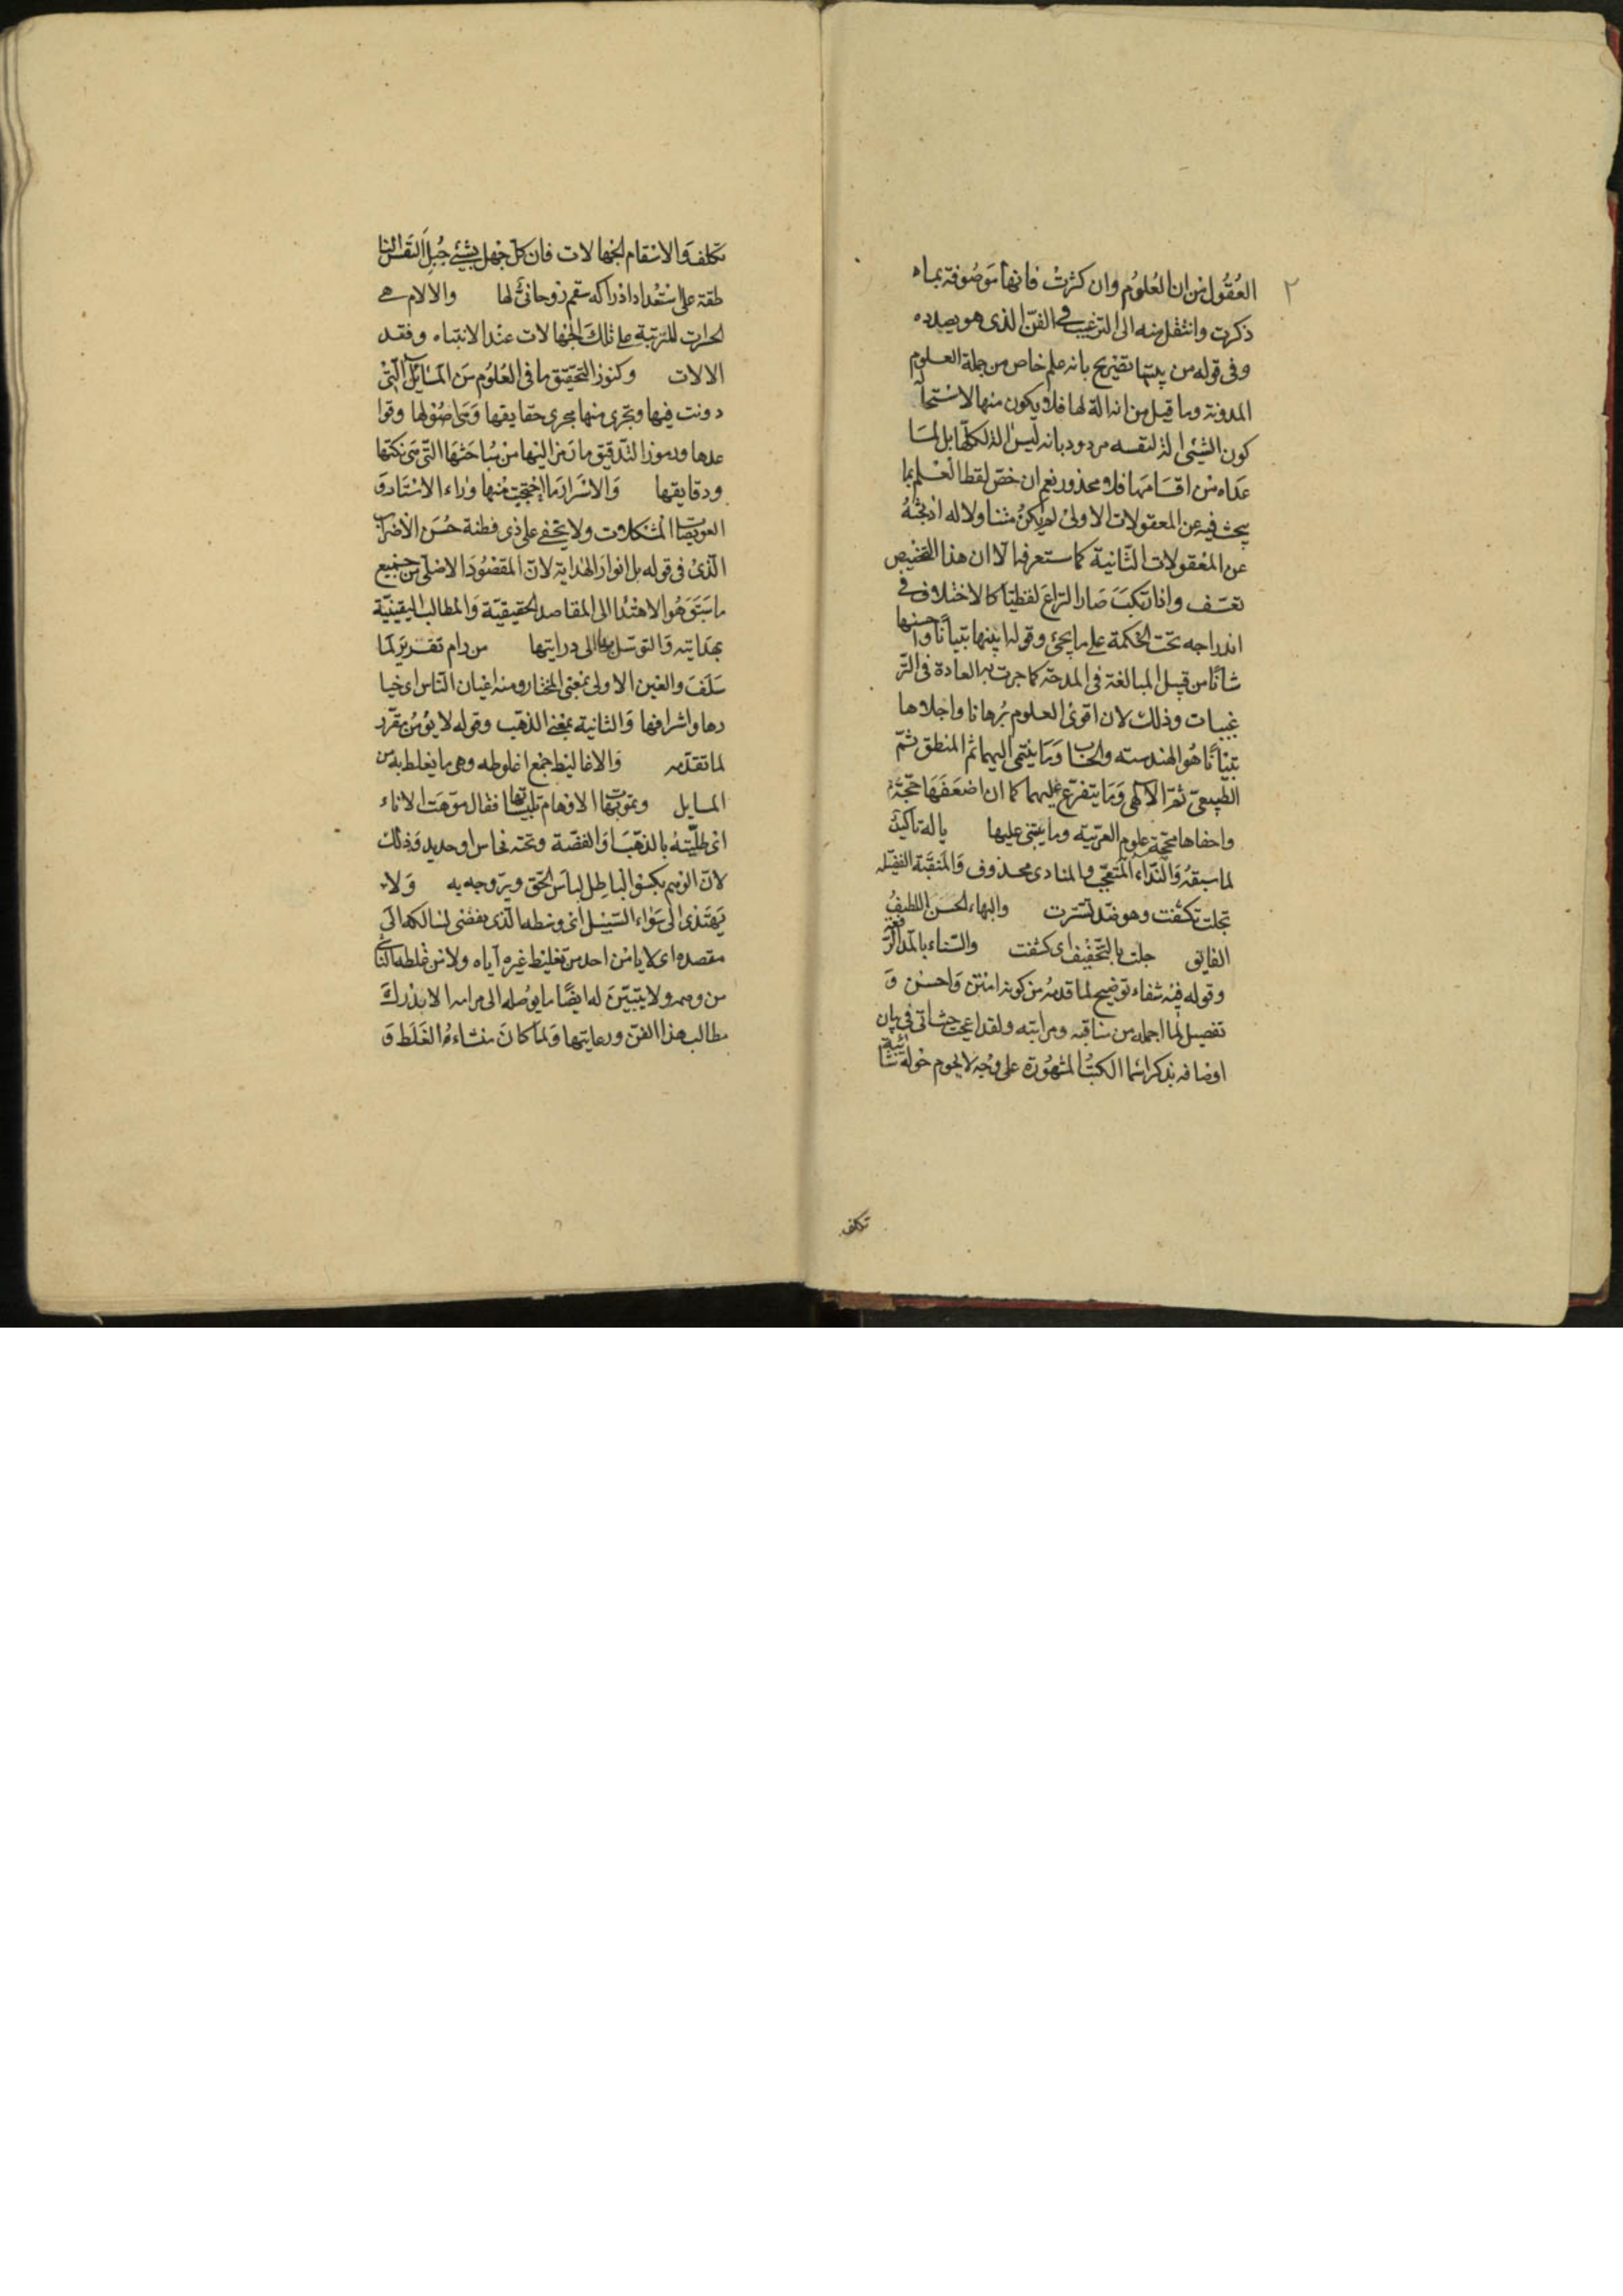 ٢
العُقُول من ان العُلوُم وان كثرتْ فانها مَوصُوفة بماه
ذكرت وانتقل منه الى الترغيب فى الفنّ الذى هو بصدده
وفى قوله من بينها تصْريح بانه علم خاص من جملة العلوم
المدونة وما قيل من انه الة لها فلا يكون منها لاسْتحا
كون الشيْى الة لنفسه مردود بانه ليسَ الة لكلّها بل لمَا
عدَاه من اقسَامهَا فلا محذور نعم ان خصّ لفظ العلم بما
يبحث فيه عن المعقولات الاولىْ لم يكنْ متناولا له اذ بحثهُ
عن المعْقولات الثّانية كما ستعرفه الّا ان هذا التخصيص
تعسّف واذا ارتكبَ صَار النزاع لفظيّا كالاختلاف فى
اندراجه تحت الحكمة على ما يجئ وقوله ابينها تبيانًا واحسنها
شانًا من قبيل المبالغة فى المدحة كما جرت به العادة فى التر
غيبات وذلك لان اقوىْ العلوم بُرهانا واجلاها
تبْيانًا هُو الهندسته والحساب وَمَا ينتمى اليهما ثم المنطق ثمّ
الطّبيعىّ ثمّ الالٰهى وَمَا يتفرّع عليهما كما ان اضعَفَهَا حجّةً
واخفاها محجّة علوم العربيّة وما يبتنى عليها ياله تاكيد
لما سبقهُ وَالنّداء للتعجّب والمنادى محذوف وَالمنقبَة الفضيْله
تجلت تكشّفت وهو ضدّ تستّرت والبهاء الحسَن اللطيفُ
الفايق جلت بالتّخفيْف اى كشفت والسّناء بالمدّ الرّفعة
وقوله فيْه شفاء توضيح لما قدمهُ من كونه امتن وَاحسَن وَ
تفصيل لما اجمله من مناقبه ومراتبه ولقد اعجبَ حيث اتى فى بيان
اوصافه بذكر اسْما الكتُب المشهُورة على وجْه لا يحوم حَولهُ شائبة
تكلف
تكلف وَالاسْقام الجهَالات فان كلّ جَهل بشئ جُبِلَ النفسُ النا
طقة على اسْتعْداد ادْراكه سقم رُوحانىّ لها والالام هى
الحسرات المترتبة على تلكَ الجهالات عنْد الانتباه وفقد
الالات وكنوز التحقيق ما فى العُلوُم مِن المسَايل الّتى
دونت فيها وتجرى منها مجرى حقايقها وَمحاصُوْلها وقوا
عدها ورموز التّدقيق ما رَمز اليْها من مُباحَثهَا التّى هىَ نكتها
ودقايقها وَالاسْرَار مَا احتجبت منْها وَرَاء الاسْتَار وَ
العويصات المشكلات ولا يخفى على ذى فطنة حُسْن الاضرَاب
الّذىْ فى قوله بل انوار الهْداية لانّ المقصُوْد الاصْلى من جميع
ما سبَق هُو الاهْتدا الى المقاصد الحقيقيّة وَالمطالب اليقينيّة
بهدَايته وَالتوسّل بها الى درايتها من رام تقريْر لما
سَلَفَ والعَين الاولى بمْعنى المختار ومنه اعْيان النّاس اى خيا
رها واشرافها وَالثانية بمعْنى الذهَب وقوله لا يؤمَن مقرّر
لما تقدّمه وَالاغاليْط جمْع اغلوطه وهى ما يغلط به من
المسايل وتمويهات الاوْهام تلبيْساتها يقال موّهتَ الاناء
اىْ طلّيتهُ بالذهَب اوَ الفضّة وتحته نحاس او حديد وَذلك
لانّ الوهم يكسُو البَاطِل لباسَ الحَق ويروجه به وَلا
يَهْتَدى الى سَوَاء السّبيْل اىْ وسَطه الّذى يفضى لسالكه الى
مقصده اى لا يامَن احد من تغليْط غيره ايّاه ولا من غلطه النّاشى
من وهمه ولا يتبيّن له ايضًا ما يوُصله الى مرامه الا بدَرك
مطالب هذا الفن ورعايتها وَلما كانَ منْشاءُ الغَلَط وَ